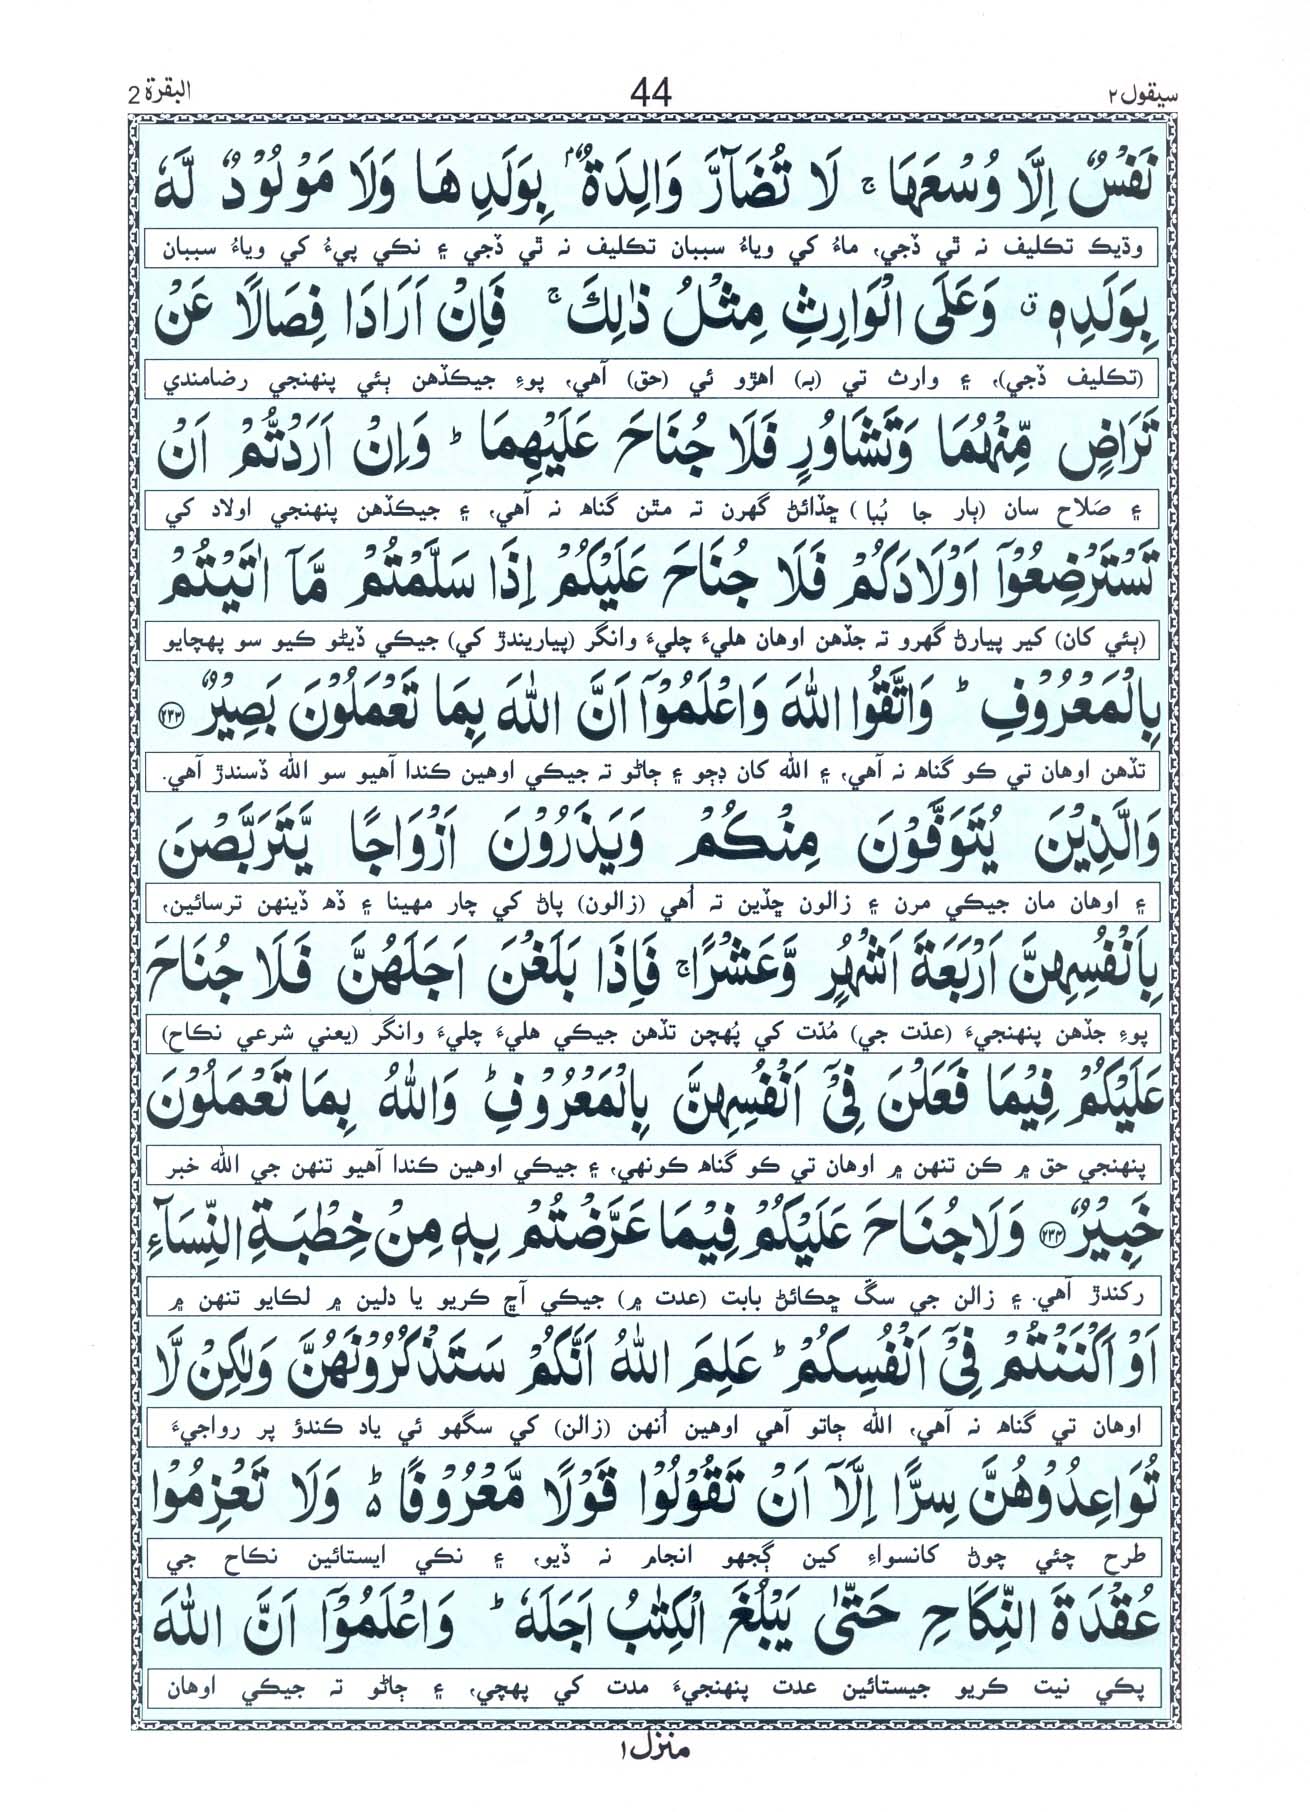 سيقول ٢ 44 البقرة 2
نَفْسٌ اِلَّا وُسْعَهَا ۚ لَا تُضَآرَّ وَالِدَةٌۢ بِوَلَدِهَا وَلَا مَوْلُوْدٌ لَّهٗ
وڌيڪ تڪليف نہ ٿي ڏجي، ماءُ کي وياءُ سببان تڪليف نہ ٿي ڏجي ۽ نڪي پيءُ کي وياءُ سببان
بِوَلَدِهٖ ۗ وَعَلَى الْوَارِثِ مِثْلُ ذٰلِكَ ۚ فَاِنْ اَرَادَا فِصَالًا عَنْ
(تڪليف ڏجي)، ۽ وارث تي (بہ) اهڙو ئي (حق) آهي، پوءِ جيڪڏهن ٻئي پنهنجي رضامندي
تَرَاضٍ مِّنْهُمَا وَتَشَاوُرٍ فَلَا جُنَاحَ عَلَيْهِمَا ؕ وَاِنْ اَرَدْتُّمْ اَنْ
۽ صَلاح سان (ٻار جا ٻُبا) ڇڏائڻ گهرن تہ مٿن گناه نہ آهي، ۽ جيڪڏهن پنهنجي اولاد کي
تَسْتَرْضِعُوْٓا اَوْلَادَكُمْ فَلَا جُنَاحَ عَلَيْكُمْ اِذَا سَلَّمْتُمْ مَّآ اٰتَيْتُمْ
(ٻئي کان) کير پيارڻ گهرو تہ جڏهن اوهان هليءَ چليءَ وانگر (پياريندڙ کي) جيڪي ڏيڻو ڪيو سو پهچايو
بِالْمَعْرُوْفِ ؕ وَاتَّقُوا اللّٰهَ وَاعْلَمُوْٓا اَنَّ اللّٰهَ بِمَا تَعْمَلُوْنَ بَصِيْرٌ ﴿٢٣٣﴾
تڏهن اوهان تي ڪو گناه نہ آهي، ۽ الله کان ڊڄو ۽ ڄاڻو تہ جيڪي اوهين ڪندا آهيو سو الله ڏسندڙ آهي.
وَالَّذِيْنَ يُتَوَفَّوْنَ مِنْكُمْ وَيَذَرُوْنَ اَزْوَاجًا يَّتَرَبَّصْنَ
۽ اوهان مان جيڪي مرن ۽ زالون ڇڏين تہ اُهي (زالون) پاڻ کي چار مهينا ۽ ڏه ڏينهن ترسائين،
بِاَنْفُسِهِنَّ اَرْبَعَةَ اَشْهُرٍ وَّعَشْرًا ۚ فَاِذَا بَلَغْنَ اَجَلَهُنَّ فَلَا جُنَاحَ
پوءِ جڏهن پنهنجيءَ (عدّت جي) مُدّت کي پُهچن تڏهن جيڪي هليءَ چليءَ وانگر (يعني شرعي نڪاح)
عَلَيْكُمْ فِيْمَا فَعَلْنَ فِيْٓ اَنْفُسِهِنَّ بِالْمَعْرُوْفِ ؕ وَاللّٰهُ بِمَا تَعْمَلُوْنَ
پنهنجي حق ۾ ڪن تنهن ۾ اوهان تي ڪو گناه ڪونهي، ۽ جيڪي اوهين ڪندا آهيو تنهن جي الله خبر
خَبِيْرٌ ﴿٢٣٤﴾ وَلَا جُنَاحَ عَلَيْكُمْ فِيْمَا عَرَّضْتُمْ بِهٖ مِنْ خِطْبَةِ النِّسَآءِ
رکندڙ آهي. ۽ زالن جي سڱ ڇڪائڻ بابت (عدت ۾) جيڪي آڇ ڪريو يا دلين ۾ لڪايو تنهن ۾
اَوْ اَكْنَنْتُمْ فِيْٓ اَنْفُسِكُمْ ؕ عَلِمَ اللّٰهُ اَنَّكُمْ سَتَذْكُرُوْنَهُنَّ وَلٰكِنْ لَّا
اوهان تي گناه نہ آهي، الله ڄاتو آهي اوهين اُنهن (زالن) کي سگهو ئي ياد ڪندؤ پر رواجيءَ
تُوَاعِدُوْهُنَّ سِرًّا اِلَّآ اَنْ تَقُوْلُوْا قَوْلًا مَّعْرُوْفًا ؕ۬ وَلَا تَعْزِمُوْا
طرح چئي چوڻ کانسواءِ کين ڳجهو انجام نہ ڏيو، ۽ نڪي ايستائين نڪاح جي
عُقْدَةَ النِّكَاحِ حَتّٰى يَبْلُغَ الْكِتٰبُ اَجَلَهٗ ؕ وَاعْلَمُوْٓا اَنَّ اللّٰهَ
پڪي نيت ڪريو جيستائين عدت پنهنجيءَ مدت کي پهچي، ۽ ڄاڻو تہ جيڪي اوهان
منزل ١